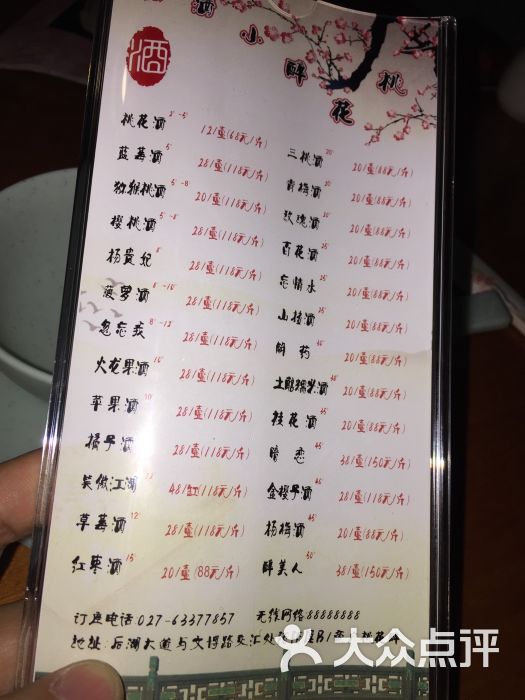 酒小醉桃花
酒
桃花酒 2°-5° 12/壶(68元/斤)
蓝莓酒 5° 28/壶(118元/斤)
猕猴桃酒 5°-8° 20/壶(118元/斤)
樱桃酒 5°-8° 28/壶(118元/斤)
杨贵妃 8° 28/壶(118元/斤)
菠萝酒 28/壶(118元/斤)
忽忘我 8°-12° 28/壶(118元/斤)
火龙果酒 28/壶(118元/斤)
苹果酒 28/壶(118元/斤)
橘子酒 28/壶(118元/斤)
笑傲江湖 48/缸(118元/斤)
草莓酒 12° 28/壶(118元/斤)
红枣酒 15° 20/壶(88元/斤)
三桃酒 20° 20/壶(88元/斤)
青梅酒 20/壶(88元/斤)
玫瑰酒 20/壶(88元/斤)
百花酒 25° 20/壶(88元/斤)
忘情水 25° 20/壶(88元/斤)
山楂酒 25° 20/壶(88元/斤)
解药 45° 20/壶(88元/斤)
土酿糯米酒 45° 20/壶(88元/斤)
桂花酒 45° 20/壶(88元/斤)
暗恋 45° 38/壶(150元/斤)
金樱子酒 45° 20/壶(118元/斤)
杨梅酒 45° 20/壶(88元/斤)
醉美人 50° 38/壶(150元/斤)
订座电话 027-63377857 无线网络88888888
地址：后湖大道与文博路交汇处
大众点评